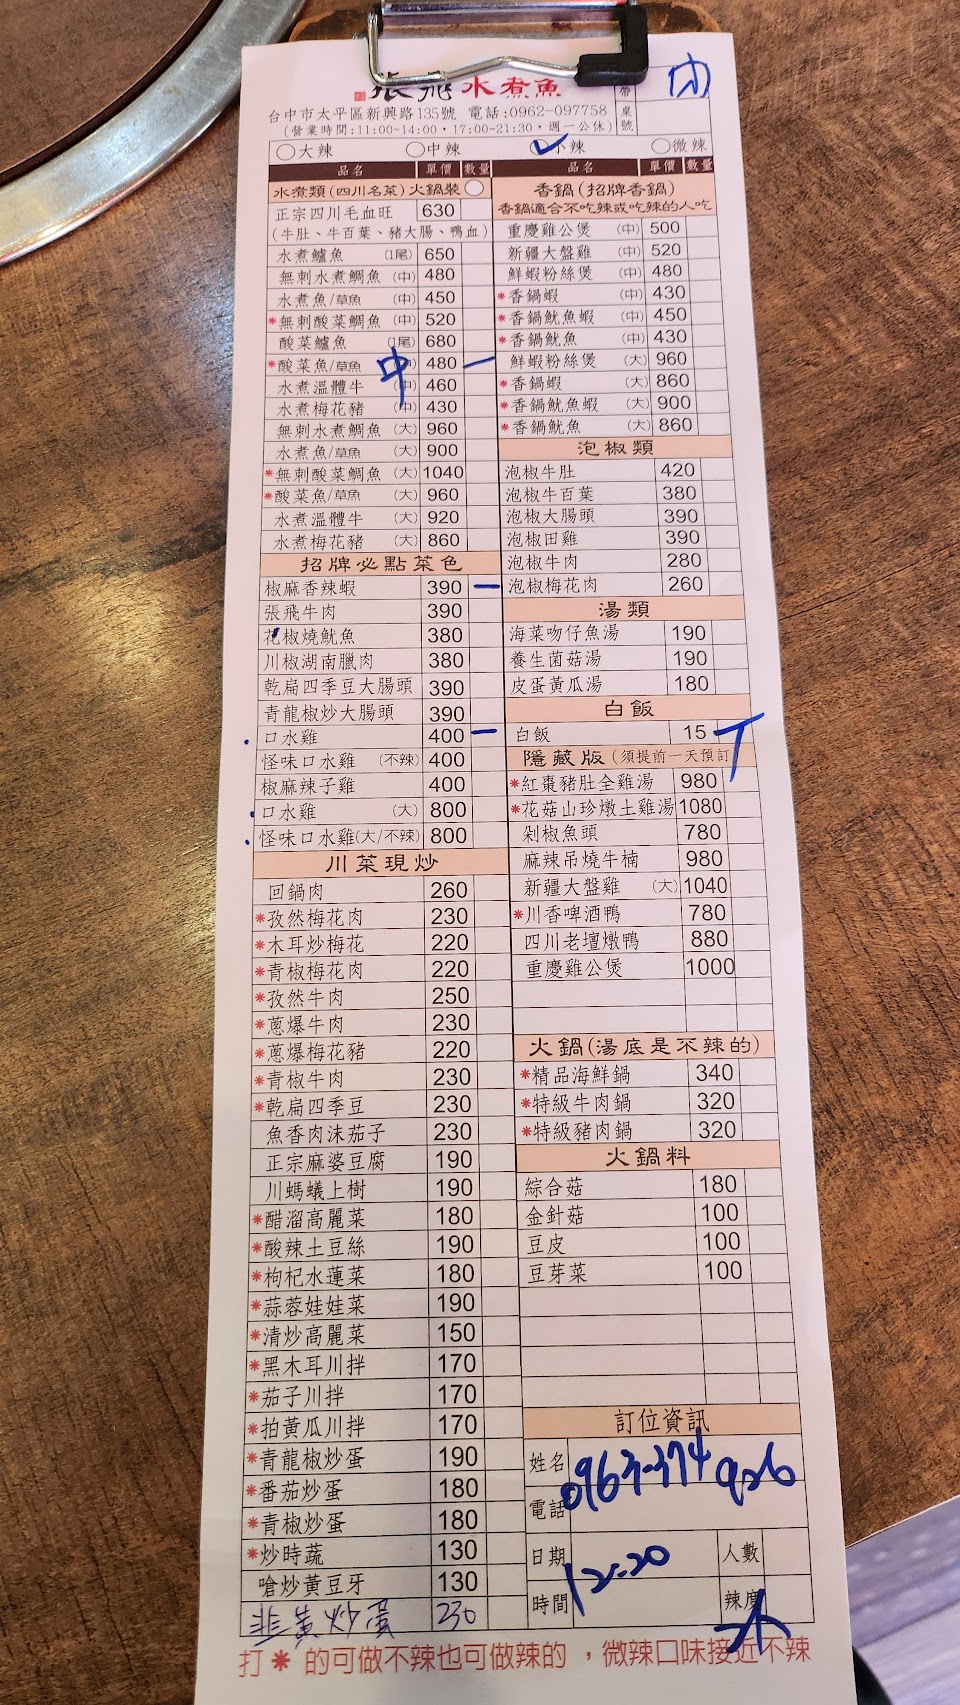 張飛水煮魚
內
帶
桌
號
台中市太平區新興路135號 電話:0962-097758
(營業時間:11:00~14:00,17:00~21:30,週一公休)
大辣 中辣 小辣 微辣
品名 單價 數量
水煮類(四川名菜)火鍋裝
正宗四川毛血旺 630
(牛肚、牛百葉、豬大腸、鴨血)
水煮鱸魚 (1尾) 650
無刺水煮鯛魚 (中) 480
水煮魚/草魚 (中) 450
*無刺酸菜鯛魚 (中) 520
酸菜鱸魚 (1尾) 680
*酸菜魚/草魚 中 480 一
水煮溫體牛 (中) 460
水煮梅花豬 (中) 430
無刺水煮鯛魚 (大) 960
水煮魚/草魚 (大) 900
*無刺酸菜鯛魚 (大) 1040
*酸菜魚/草魚 (大) 960
水煮溫體牛 (大) 920
水煮梅花豬 (大) 860
招牌必點菜色
椒麻香辣蝦 390 一
張飛牛肉 390
花椒燒魷魚 380
川椒湖南臘肉 380
乾扁四季豆大腸頭 390
青龍椒炒大腸頭 390
口水雞 400 一
怪味口水雞 (不辣) 400
椒麻辣子雞 400
口水雞 (大) 800
怪味口水雞(大/不辣) 800
川菜現炒
回鍋肉 260
*孜然梅花肉 230
*木耳炒梅花 220
*青椒梅花肉 220
*孜然牛肉 250
*蔥爆牛肉 230
*蔥爆梅花豬 220
*青椒牛肉 230
*乾扁四季豆 230
魚香肉沫茄子 230
正宗麻婆豆腐 190
川螞蟻上樹 190
*醋溜高麗菜 180
*酸辣土豆絲 190
*枸杞水蓮菜 180
*蒜蓉娃娃菜 190
*清炒高麗菜 150
*黑木耳川拌 170
*茄子川拌 170
*拍黃瓜川拌 170
*青龍椒炒蛋 190
*番茄炒蛋 180
*青椒炒蛋 180
*炒時蔬 130
嗆炒黃豆牙 130
韭黃炒蛋 230
品名 單價 數量
香鍋(招牌香鍋)
香鍋適合不吃辣或吃辣的人吃
重慶雞公煲 (中) 500
新疆大盤雞 (中) 520
鮮蝦粉絲煲 (中) 480
*香鍋蝦 (中) 430
*香鍋魷魚蝦 (中) 450
*香鍋魷魚 (中) 430
鮮蝦粉絲煲 (大) 960
*香鍋蝦 (大) 860
*香鍋魷魚蝦 (大) 900
*香鍋魷魚 (大) 860
泡椒類
泡椒牛肚 420
泡椒牛百葉 380
泡椒大腸頭 390
泡椒田雞 390
泡椒牛肉 280
泡椒梅花肉 260
湯類
海菜吻仔魚湯 190
養生菌菇湯 190
皮蛋黃瓜湯 180
白飯
白飯 15
隱藏版(須提前一天預訂)
*紅棗豬肚全雞湯 980
*花菇山珍燉土雞湯 1080
剁椒魚頭 780
麻辣吊燒牛楠 980
新疆大盤雞 (大) 1040
*川香啤酒鴨 780
四川老壇燉鴨 880
重慶雞公煲 1000
火鍋(湯底是不辣的)
*精品海鮮鍋 340
*特級牛肉鍋 320
*特級豬肉鍋 320
火鍋料
綜合菇 180
金針菇 100
豆皮 100
豆芽菜 100
訂位資訊
姓名
電話 0963-374 926
日期 人數
時間 12:20 辣度 小
打*的可做不辣也可做辣的,微辣口味接近不辣